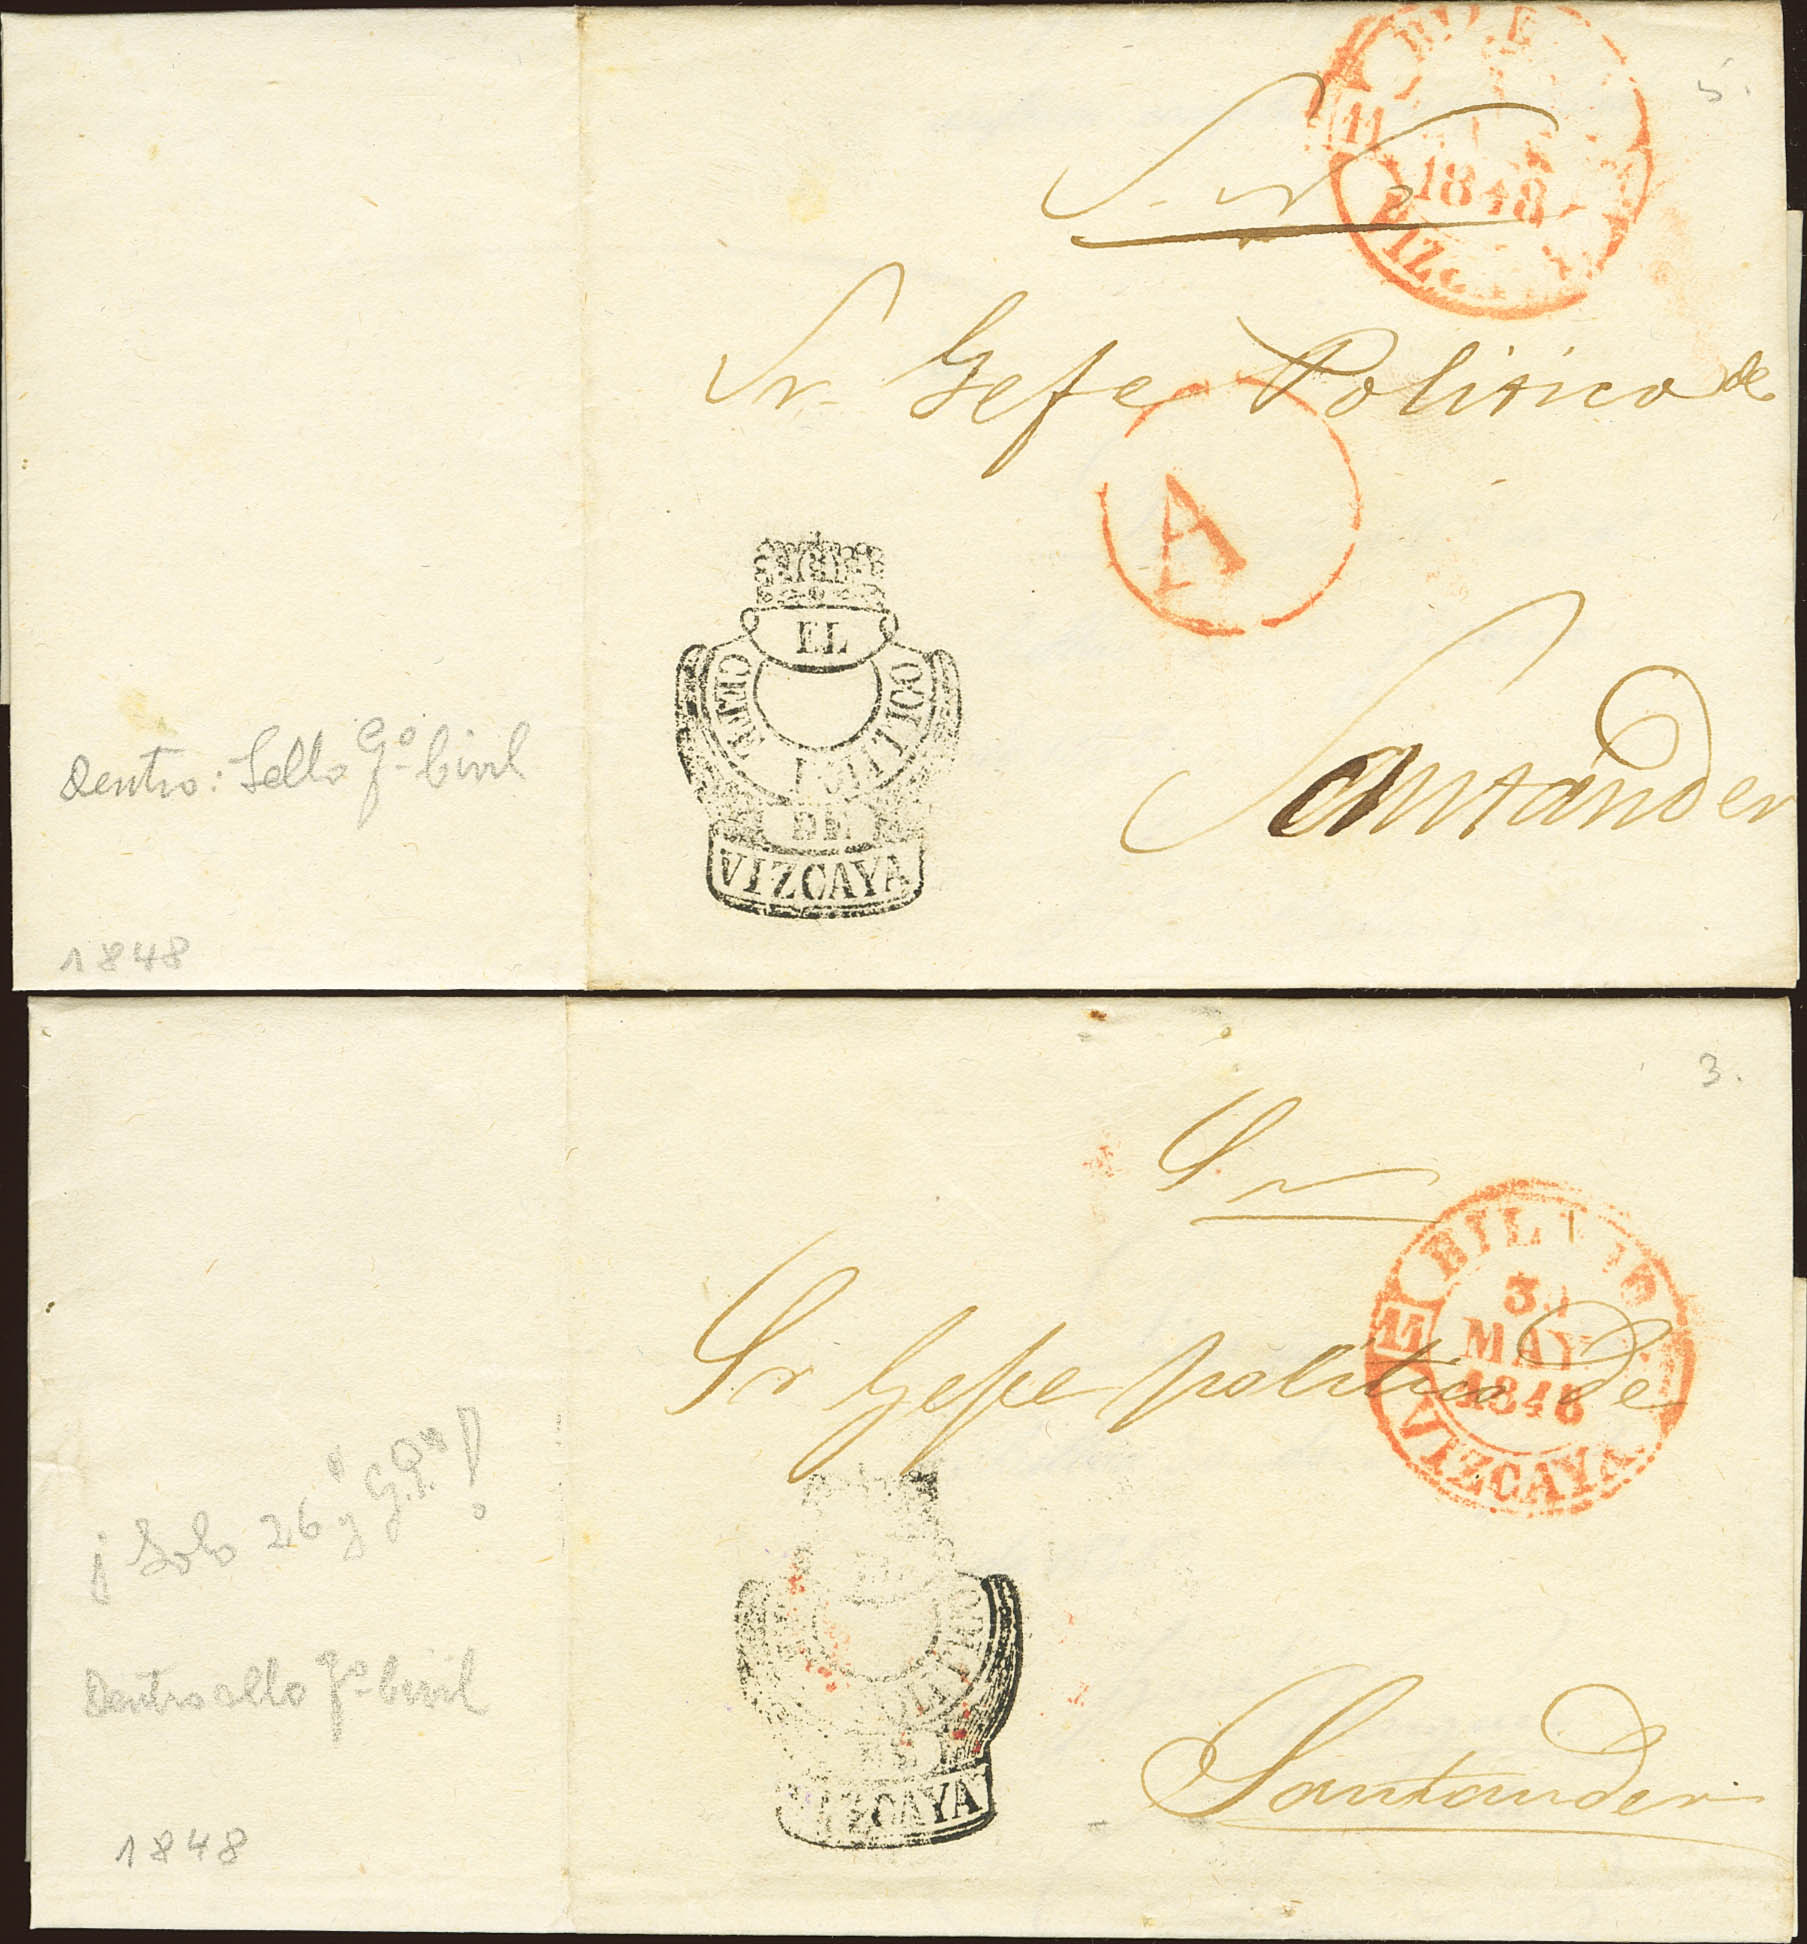 1848
VIZC
5.
S. N.
Sr. Gefe Politico de
A
EL
GEFE
POLITICO
DE
VIZCAYA
Santander
Dentro: Sello Gº Civil
1848
3.
S N
BILBAO
3
MAY
1848
11
VIZCAYA
Sr Gefe politico de
POLITICO
VIZCAYA
Santander
¡Solo 26 y G.P.!
Dentro sello Gº Civil
1848